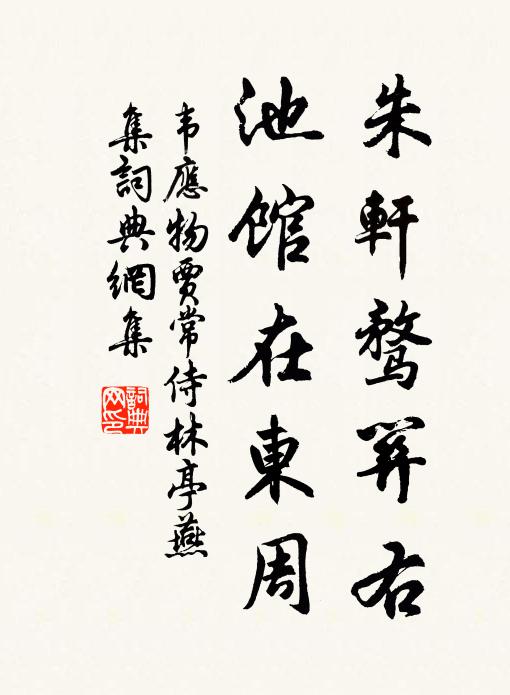 朱軒騖關右
池館在東周
韦應物賈常侍林亭燕
集詞典網集
詞典
网印